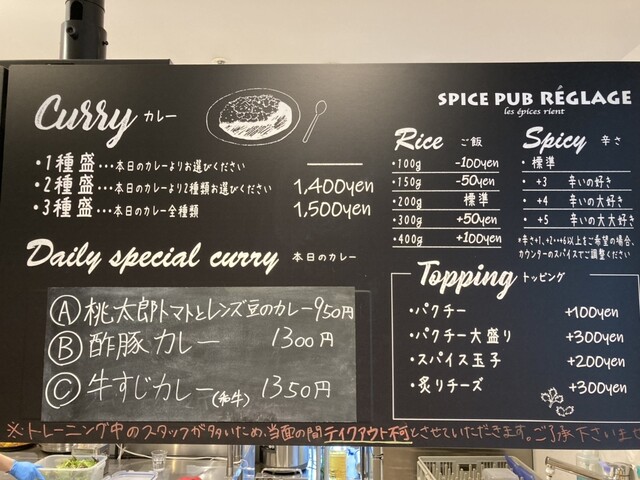 Curry カレー
・1種盛・・・本日のカレーよりお選びください
・2種盛・・・本日のカレーより2種類お選びください 1,400yen
・3種盛・・・本日のカレー全種類 1,500yen
Daily special curry 本日のカレー
Ⓐ 桃太郎トマトとレンズ豆のカレー 950円
Ⓑ 酢豚カレー 1300円
Ⓒ 牛すじカレー(和牛) 1350円
SPICE PUB RÉGLAGE
les épices rient
Rice ご飯
・100g -100yen
・150g -50yen
・200g 標準
・300g +50yen
・400g +100yen
Spicy 辛さ
・ 標準
・ +3 辛いの好き
・ +4 辛いの大好き
・ +5 辛いの大大好き
*辛さ+1、+2・・+6以上をご希望の場合、
カウンターのスパイスでご調整ください
Topping トッピング
・パクチー +100yen
・パクチー大盛り +300yen
・スパイス玉子 +200yen
・炙りチーズ +300yen
※トレーニング中のスタッフが多いため、当面の間テイクアウト不可とさせていただきます。ご了承下さいませ